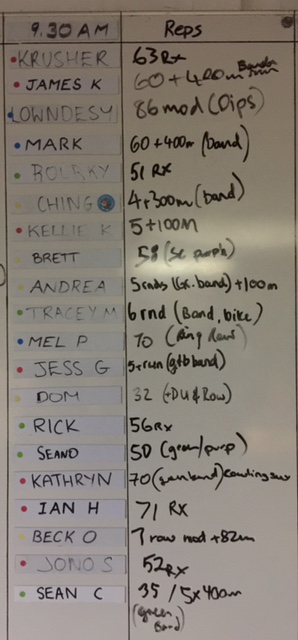 9.30 AM Reps
KRUSHER 63 Rx
JAMES K 60 + 400m Band run
LOWNDESY 86 mod (Dips)
MARK 60 + 400m (band)
51 RX
CHING 4 + 300m (band)
KELLIE K 5 + 100M
BRETT 58 (purple)
ANDREA 5 rnds (band) + 100m
TRACEY M 6 rnd (Band, bike)
MEL P 70 (Ring Rows)
JESS G 5 + run (band)
DOM 32 (+DU & Row)
RICK 56 Rx
SEANO 50 (green/purp)
KATHRYN 70 (band)
IAN H 71 RX
BECK O 7 row mod + 82m
JONO S 52 Rx
SEAN C 35 / 5x400m
(green Band)